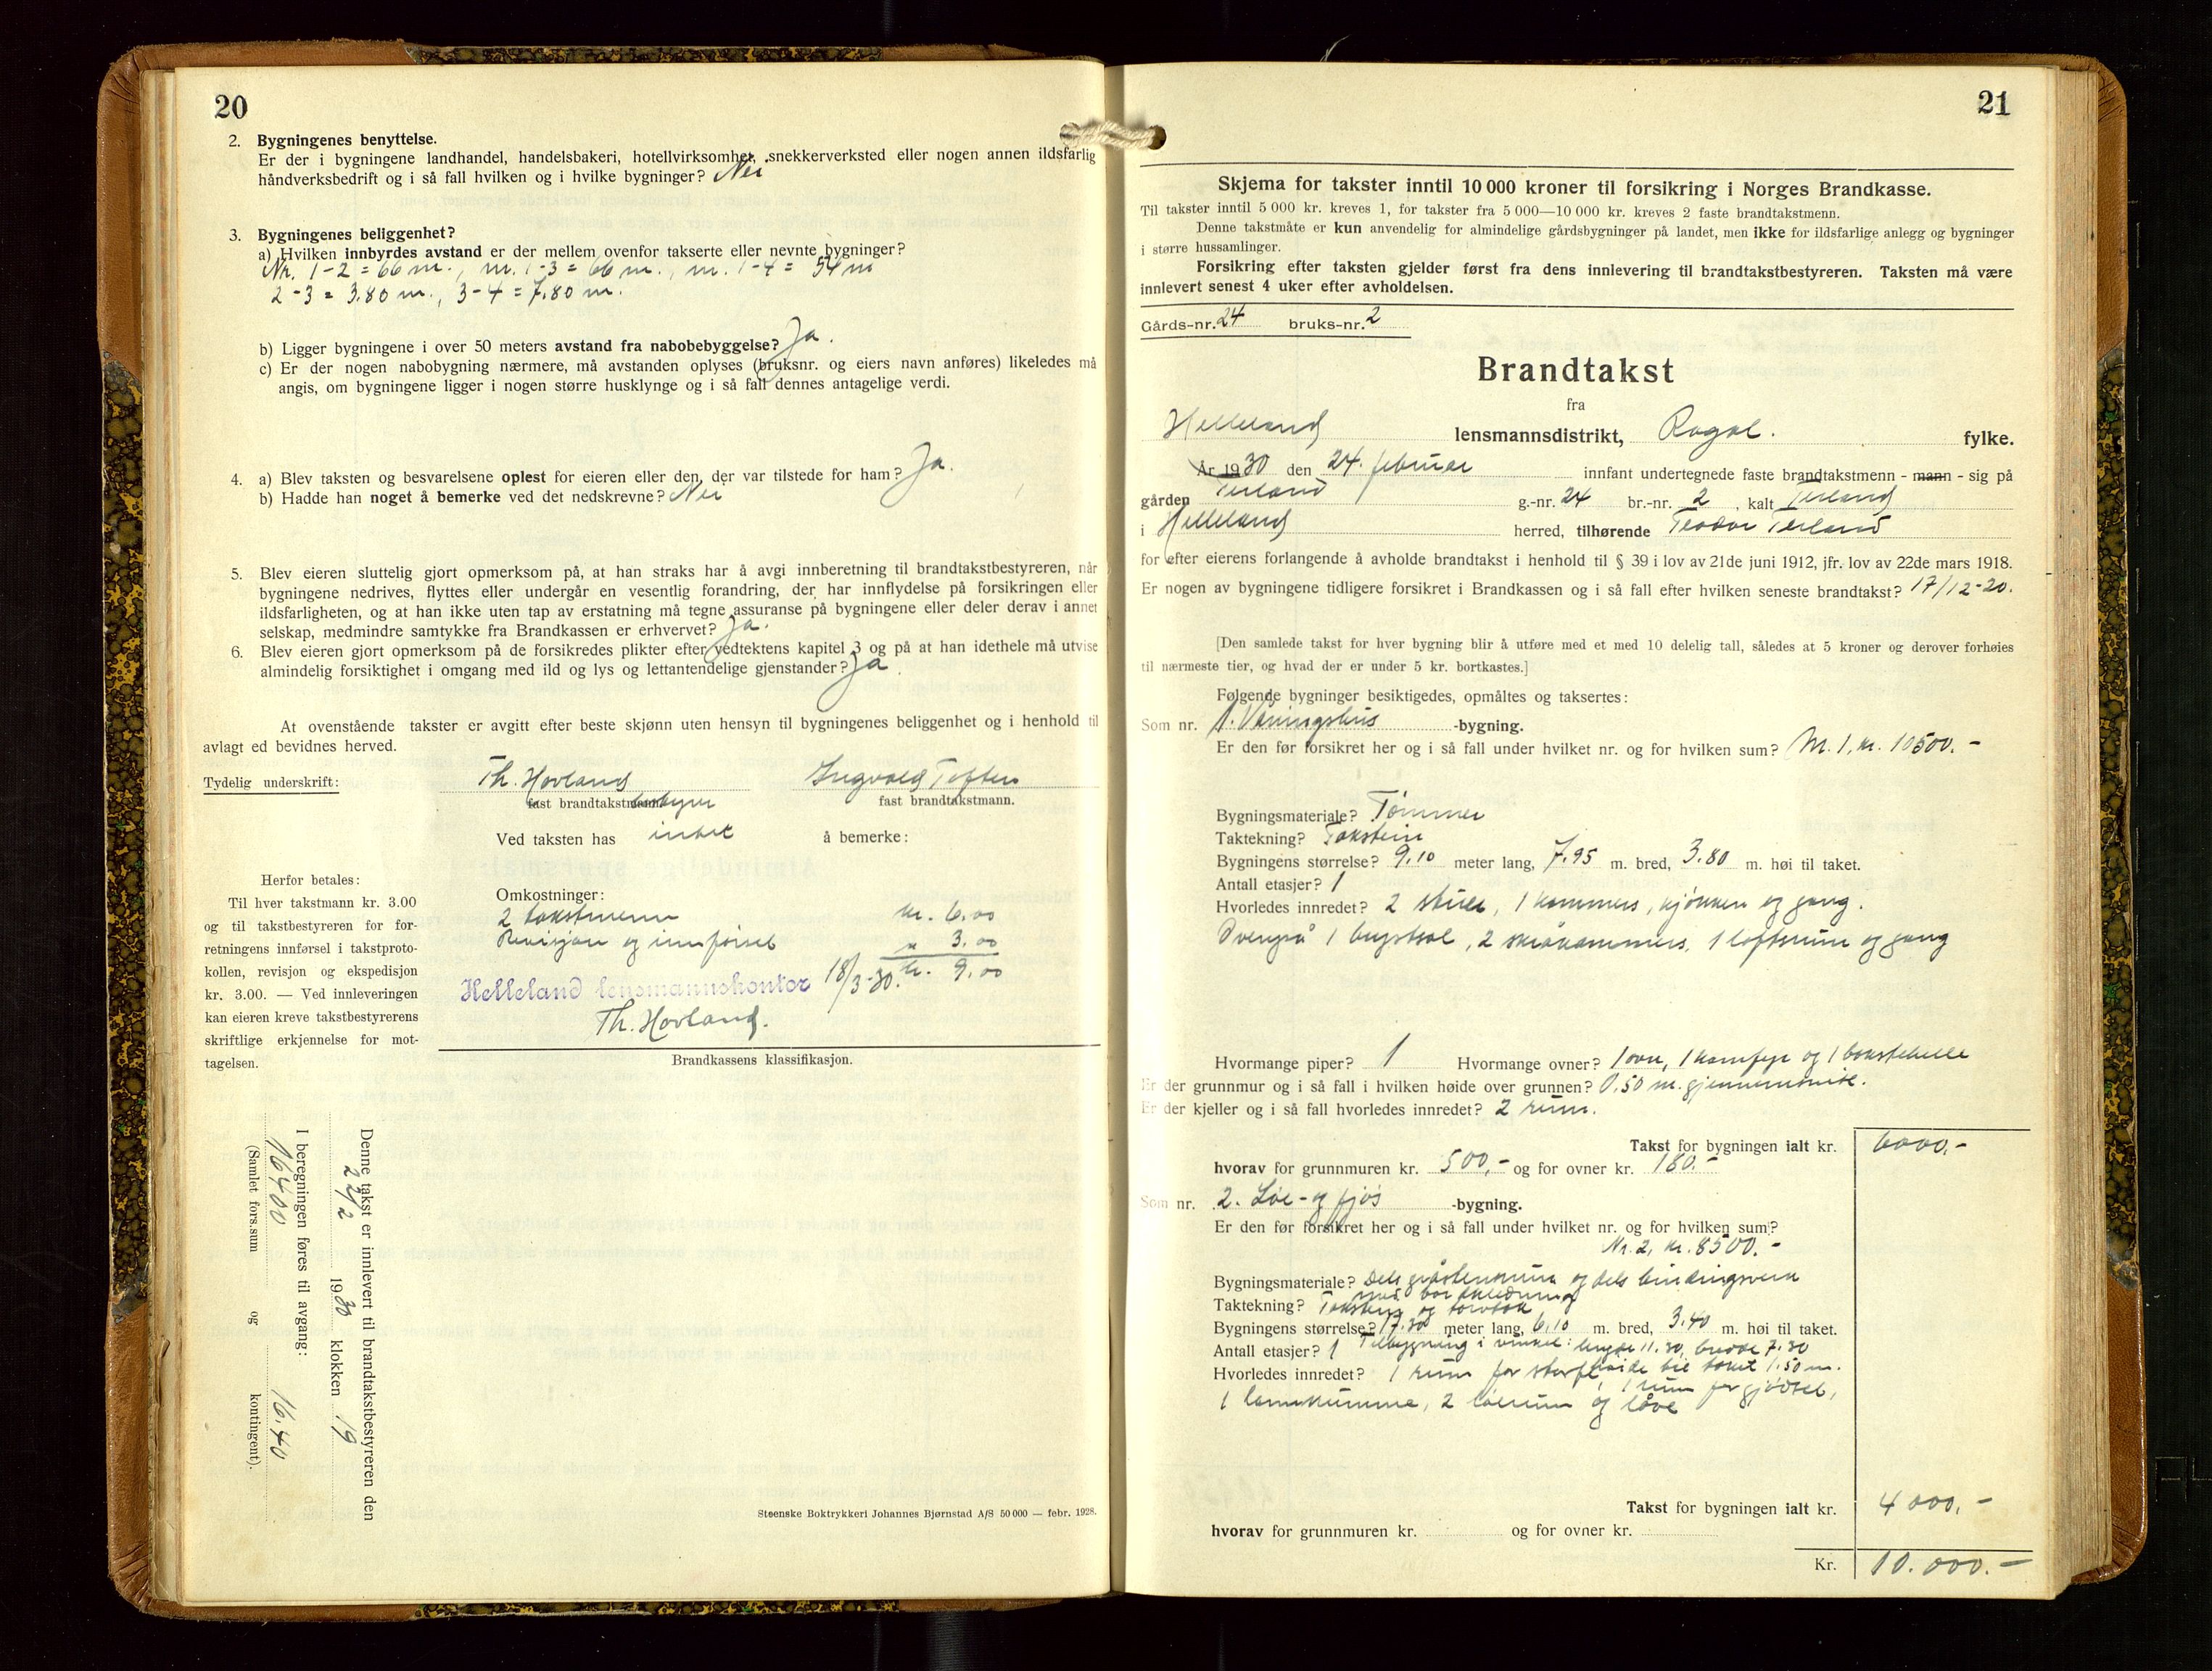 20
2. Bygningenes benyttelse.
Er der i bygningene landhandel, handelsbakeri, hotellvirksomhet, snekkerverksted eller nogen annen ildsfarlig
håndverksbedrift og i så fall hvilken og i hvilke bygninger? Nei
3. Bygningenes beliggenhet?
a) Hvilken innbyrdes avstand er der mellem ovenfor takserte eller nevnte bygninger?
Nr. 1-2 = 66 m., nr. 1-3 = 66 m., nr. 1-4 = 54 m
2-3 = 3.80 m., 3-4 = 7.80 m.
b) Ligger bygningene i over 50 meters avstand fra nabobebyggelse? Ja.
c) Er der nogen nabobygning nærmere, må avstanden oplyses (bruksnr. og eiers navn anføres) likeledes må
angis, om bygningene ligger i nogen større husklynge og i så fall dennes antagelige verdi.
4. a) Blev taksten og besvarelsene oplest for eieren eller den, der var tilstede for ham? Ja.
b) Hadde han noget å bemerke ved det nedskrevne? Nei
5. Blev eieren sluttelig gjort opmerksom på, at han straks har å avgi innberetning til brandtakstbestyreren, når
bygningene nedrives, flyttes eller undergår en vesentlig forandring, der har innflydelse på forsikringen eller
ildsfarligheten, og at han ikke uten tap av erstatning må tegne assuranse på bygningene eller deler derav i annet
selskap, medmindre samtykke fra Brandkassen er erhvervet? Ja.
6. Blev eieren gjort opmerksom på de forsikredes plikter efter vedtektens kapitel 3 og på at han idethele må utvise
almindelig forsiktighet i omgang med ild og lys og lettantendelige gjenstander? Ja.
At ovenstående takster er avgitt efter beste skjønn uten hensyn til bygningenes beliggenhet og i henhold til
avlagt ed bevidnes herved.
Tydelig underskrift: Th. Hovland Ingvald Toften
fast brandtakst bestyrer fast brandtakstmann.
Ved taksten has intet å bemerke:
Herfor betales:
Til hver takstmann kr. 3.00
og til takstbestyreren for for-
retningens innførsel i takstproto-
kollen, revisjon og ekspedisjon
kr. 3.00. — Ved innleveringen
kan eieren kreve takstbestyrerens
skriftlige erkjennelse for mot-
tagelsen.
Omkostninger:
2 takstmenn kr. 6.00
Revisjon og innførsel " 3.00
kr. 9.00
Helleland lensmannskontor 18/3-30.
Th. Hovland.
Brandkassens klassifikasjon.
Denne takst er innlevert til brandtakstbestyreren den
22/2 1930 klokken 19
I beregningen føres til avgang:
16400 16.40
(Samlet fors.sum og kontingent).
Steenske Boktrykkeri Johannes Bjørnstad A/S 50 000 — febr. 1928.
21
Skjema for takster inntil 10 000 kroner til forsikring i Norges Brandkasse.
Til takster inntil 5 000 kr. kreves 1, for takster fra 5 000—10 000 kr. kreves 2 faste brandtakstmenn.
Denne takstmåte er kun anvendelig for almindelige gårdsbygninger på landet, men ikke for ildsfarlige anlegg og bygninger
i større hussamlinger.
Forsikring efter taksten gjelder først fra dens innlevering til brandtakstbestyreren. Taksten må være
innlevert senest 4 uker efter avholdelsen.
Gårds-nr. 24 bruks-nr. 2
Brandtakst
fra
Helleland lensmannsdistrikt, Rogal. fylke.
År 1930 den 24. februar innfant undertegnede faste brandtakstmenn - mann - sig på
gården Terland g.-nr. 24 br.-nr. 2, kalt Terland
i Helleland herred, tilhørende Teodor Terland
for efter eierens forlangende å avholde brandtakst i henhold til § 39 i lov av 21de juni 1912, jfr. lov av 22de mars 1918.
Er nogen av bygningene tidligere forsikret i Brandkassen og i så fall efter hvilken seneste brandtakst? 17/12-20.
[Den samlede takst for hver bygning blir å utføre med et med 10 delelig tall, således at 5 kroner og derover forhøies
til nærmeste tier, og hvad der er under 5 kr. bortkastes.]
Følgende bygninger besiktigedes, opmåltes og taksertes:
Som nr. 1. Våningshus -bygning.
Er den før forsikret her og i så fall under hvilket nr. og for hvilken sum? Nr. 1, kr. 10500.-
Bygningsmateriale? Tømmer
Taktekning? Takstein
Bygningens størrelse? 9.10 meter lang, 7.95 m. bred, 3.80 m. høi til taket.
Antall etasjer? 1
Hvorledes innredet? 2 stuer, 1 kammers, kjøkken og gang.
Ovenpå 1 brystsal, 2 skråkammers, 1 loftsrum og gang
Hvormange piper? 1 Hvormange ovner? 1 ovn, 1 komfyr og 1 bakstehelle
Er der grunnmur og i så fall i hvilken høide over grunnen? 0.50 m. gjennemsnitt.
Er der kjeller og i så fall hvorledes innredet? 2 rum.
Takst for bygningen ialt kr. 6000.-
hvorav for grunnmuren kr. 500,- og for ovner kr. 180.-
Som nr. 2. Løe- og fjøs -bygning.
Er den før forsikret her og i så fall under hvilket nr. og for hvilken sum?
Nr. 2, kr. 8500.-
Bygningsmateriale? Dels gråstensmur og dels bindingsverk
med bordkledning
Taktekning? Takstein og torvtak
Bygningens størrelse? 17.30 meter lang, 6.10 m. bred, 3.40 m. høi til taket.
Antall etasjer? 1 Tilbygning i vinkel: lengde 11.30, bredde 7.30
høide til taket 1.50 m.
Hvorledes innredet? 1 rum for storfe, 1 rum for gjødsel,
1 lamkumme, 2 løerum og låve
Takst for bygningen ialt kr. 4000.-
hvorav for grunnmuren kr. og for ovner kr.
Kr. 10.000.-